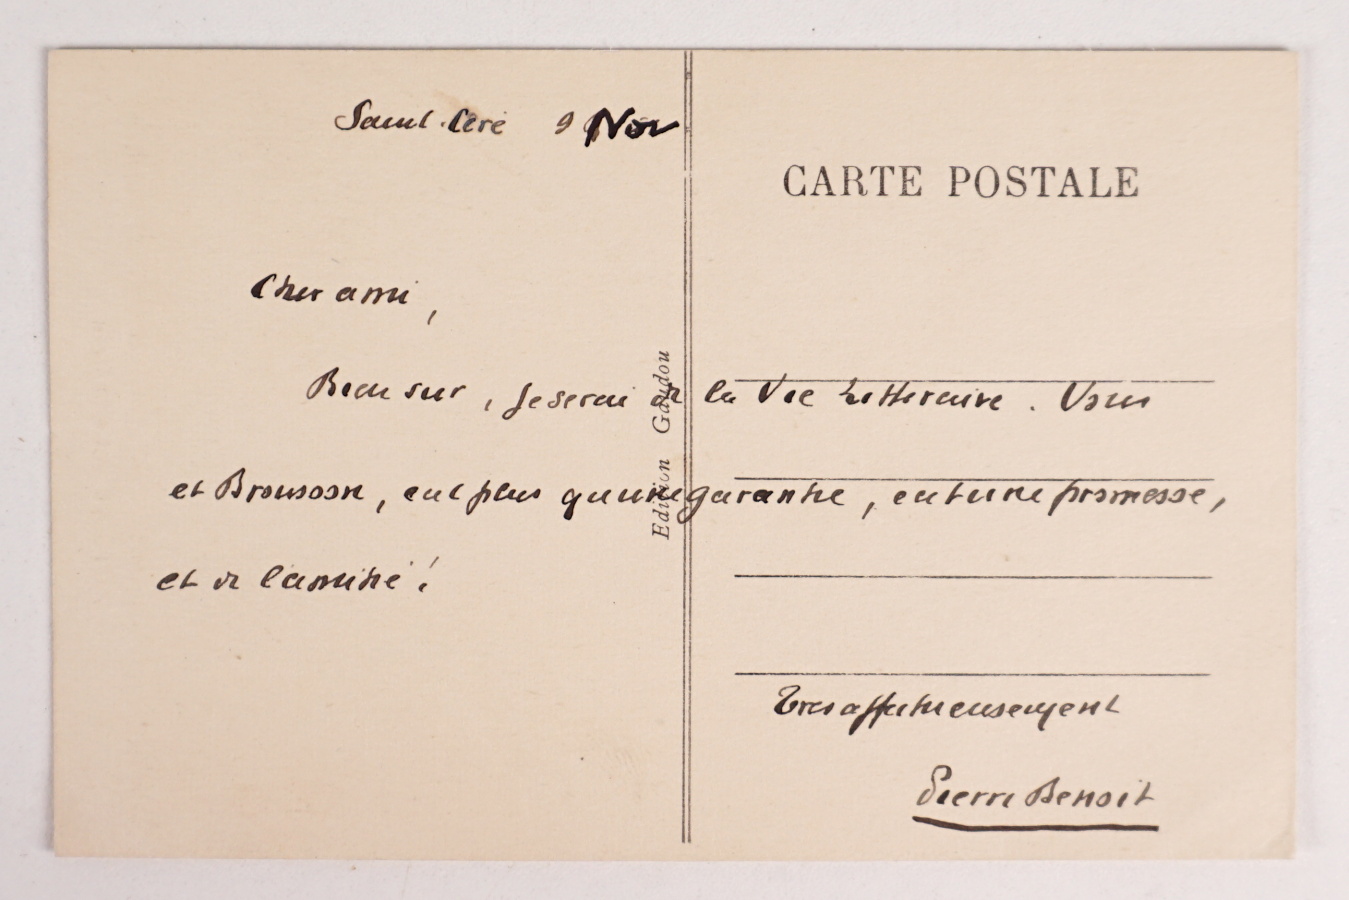 Saint-Céré 9 Nov
CARTE POSTALE
Cher ami,
Bien sur, je serai de la Vie Littéraire. Vous
et Brousson, c'est plus qu'une garantie, c'est une promesse,
et de l'amitié !
Edition Gaudou
Tres affectueusement
Pierre Benoit